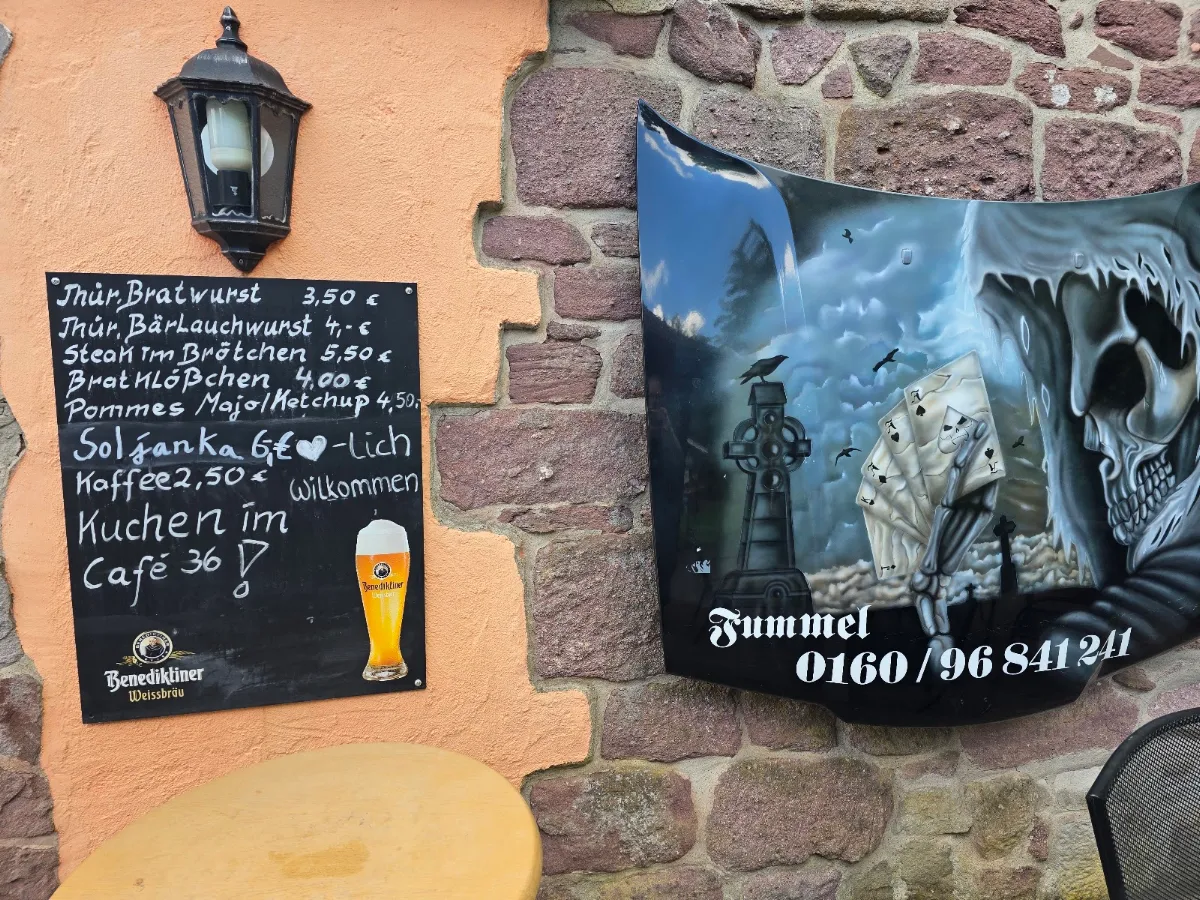 Thür. Bratwurst 3,50 €
Thür. BärLauchwurst 4,- €
Steak im Brötchen 5,50 €
BratKlößchen 4,00 €
Pommes Majo/Ketchup 4,50.
Soljanka 6,€ ♥-Lich
Kaffee 2,50 €
Wilkommen
Kuchen im
Café 36 !
Benediktiner
Benediktiner
Weissbräu
A
A
Fummel
0160 / 96 841 241